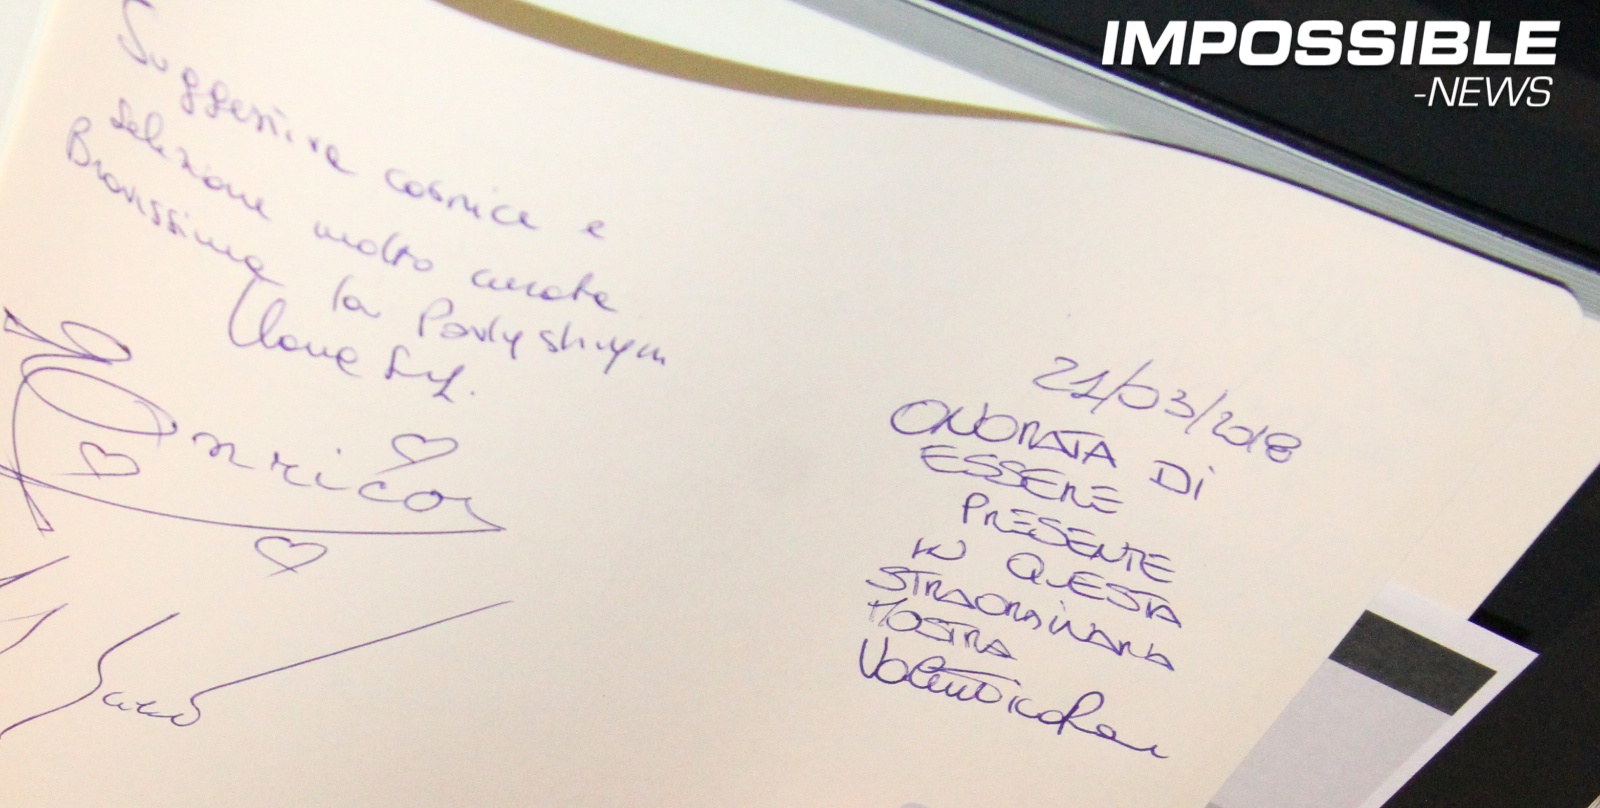 IMPOSSIBLE
-NEWS
Suggestiva cornice e
selezione molto curata
Bravissima la Pavlyshyn
Enrico
21/03/2018
ONORATA DI
ESSERE
PRESENTE
IN QUESTA
STRAORDINARIA
MOSTRA